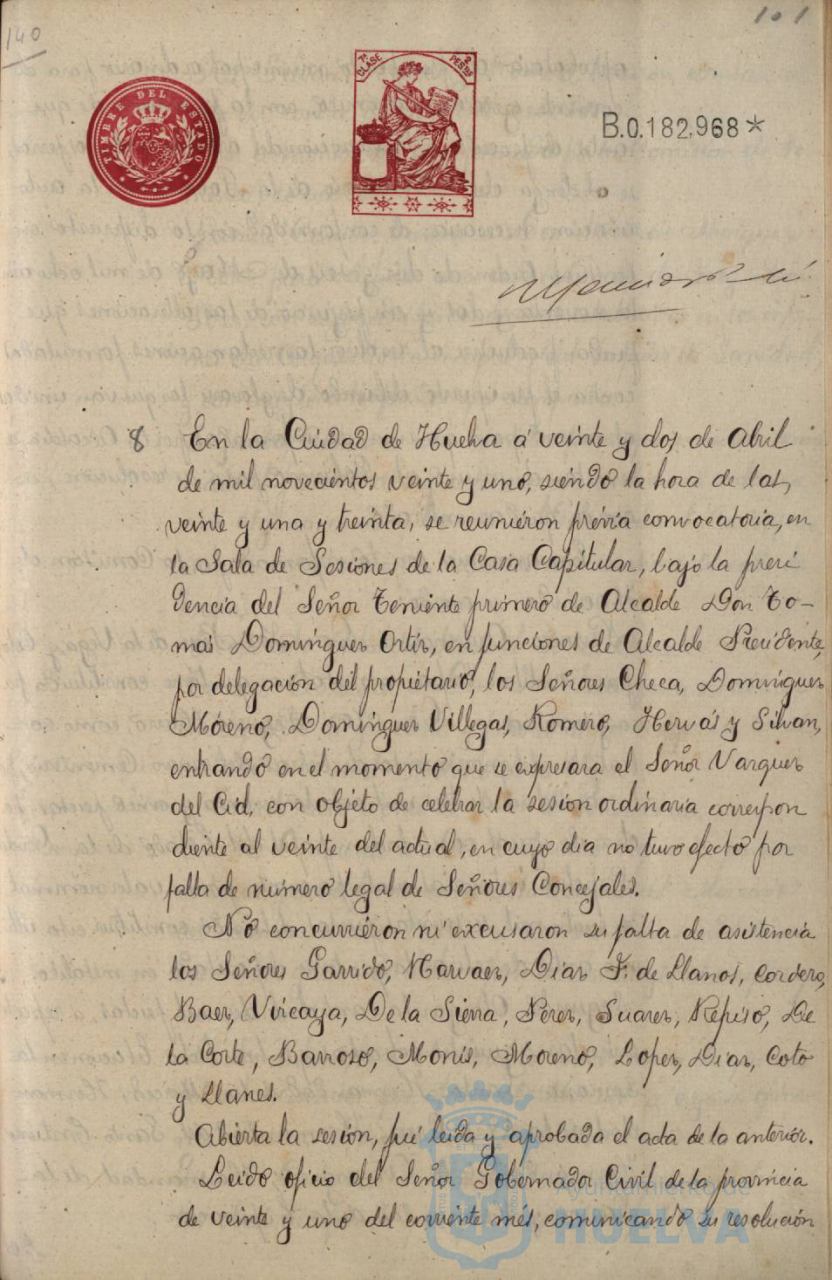 140
101
TIMBRE DEL ESTADO
7ª CLASE
2 PESETAS
B.0.182,968*
8 En la Ciudad de Huelva á veinte y dos de Abril
de mil novecientos veinte y uno, siendo la hora de las,
veinte y una y treinta, se reunieron prévia convocatoria, en
la Sala de Sesiones de la Casa Capitular, bajo la presi
dencia del Señor Teniente primero de Alcalde Don To-
más Dominguez Ortiz, en funciones de Alcalde Presidente,
por delegación del propietario, los Señores Checa, Dominguez
Moreno, Dominguez Villegas, Romero, Hervás y Silvan,
entrando en el momento que se expresara el Señor Vazquez
del Cid, con objeto de celebrar la sesion ordinaria correspon
diente al veinte del actual, en cuyo dia no tuvo efecto por
falta de número legal de Señores Concejales.
No concurrieron ni excusaron su falta de asistencia
los Señores Garrido, Narvaez, Diaz F. de Llanos, Cordero,
Baez, Vizcaya, De la Sierra, Perez, Suarez, Repiso, De
la Corte, Barroso, Monis, Moreno, Lopez, Diaz, Coto
y Llanes.
Abierta la sesión, fué leida y aprobada el acta de la anterior.
Leido oficio del Señor Gobernador Civil de la provincia
de veinte y uno del corriente més, comunicando su resolución
Ayuntamiento de
HUELVA